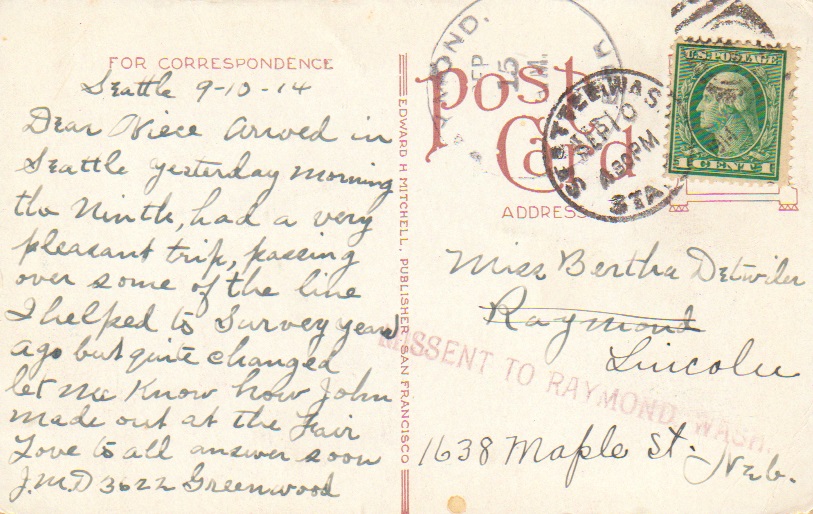 FOR CORRESPONDENCE
Seattle 9-10-14
Dear Niece Arrived in
Seattle yesterday morning
the Ninth, had a very
pleasant trip, passing
over some of the line
I helped to Survey years
ago but quite changed
let me Know how John
made out at the Fair
Love to all answer soon
J.M.D 3622 Greenwood
EDWARD H MITCHELL, PUBLISHER SAN FRANCISCO
Post
Card
ADDRESS
SEATTLE, WASH.
SEP 10
4 30 PM
STA.
SEP
15
M.
U.S. POSTAGE
1 CENT 1
Miss Bertha Detwiler
Raymond
Lincoln
MISSENT TO RAYMOND, WASH.
1638 Maple St. Neb.